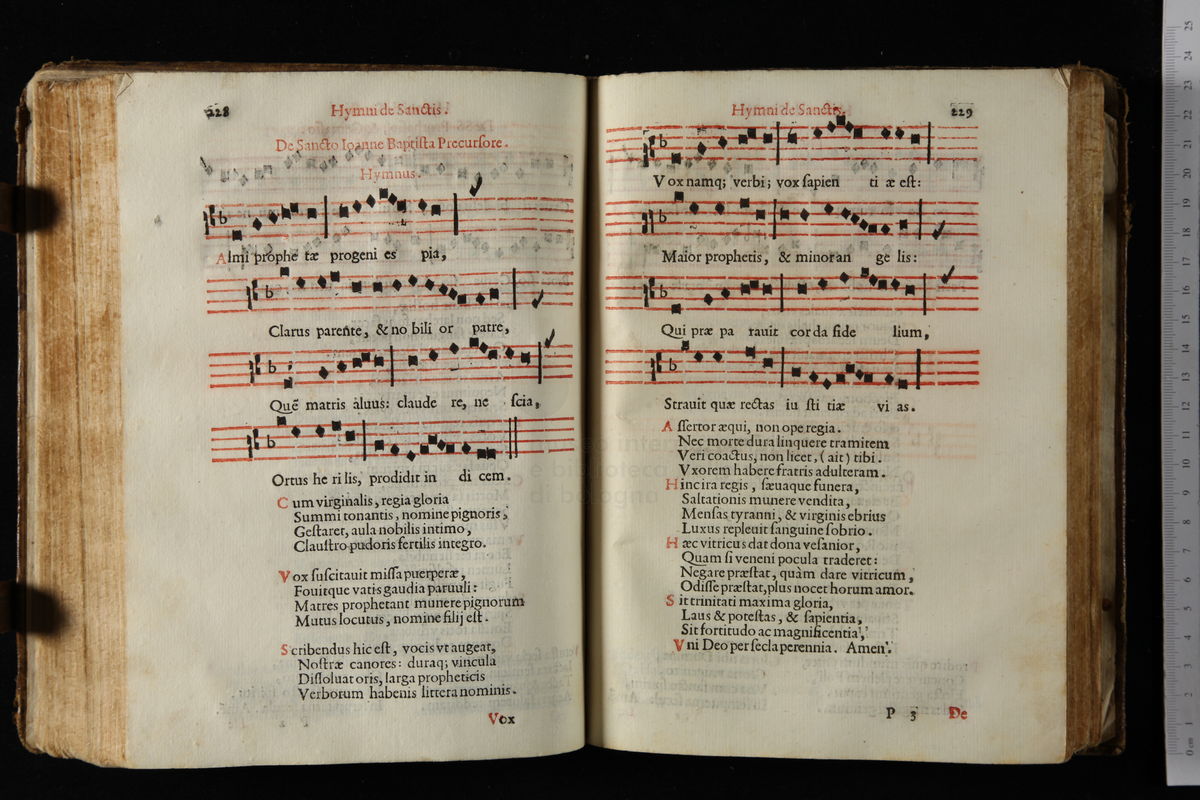 228
Hymni de Sanctis.
De Sancto Ioanne Baptista Precursore.
Hymnus.
Almi prophe tæ progeni es pia,
Clarus parente, & no bili or patre,
Quẽ matris aluus: claude re, ne scia,
Ortus he ri lis, prodidit in di cem.
Cum virginalis, regia gloria
Summi tonantis, nomine pignoris,
Gestaret, aula nobilis intimo,
Claustro pudoris fertilis integro.
Vox suscitauit missa puerperæ,
Fouitque vatis gaudia paruuli:
Matres prophetant munere pignorum
Mutus locutus, nomine filij est.
Scribendus hic est, vocis vt augeat,
Nostræ canores: duraq; vincula
Dissoluat oris, larga propheticis
Verborum habenis littera nominis.
Vox
Hymni de Sanctis.
229
Vox namq; verbi; vox sapien ti æ est:
Maior prophetis, & minor an ge lis:
Qui præ pa rauit cor da fide lium,
Strauit quæ rectas iu sti tiæ vi as.
Assertor æqui, non ope regia.
Nec morte dura linquere tramitem
Veri coactus, non licet, (ait) tibi.
Vxorem habere fratris adulteram.
Hinc ira regis, sæuaque funera,
Saltationis munere vendita,
Mensas tyranni, & virginis ebrius
Luxus repleuit sanguine sobrio.
Hæc vitricus dat dona vesanior,
Quam si veneni pocula traderet:
Negare præstat, quàm dare vitricum,
Odisse præstat, plus nocet horum amor.
Sit trinitati maxima gloria,
Laus & potestas, & sapientia,
Sit fortitudo ac magnificentia,
Vni Deo per secla perennia. Amen.
P 3 De